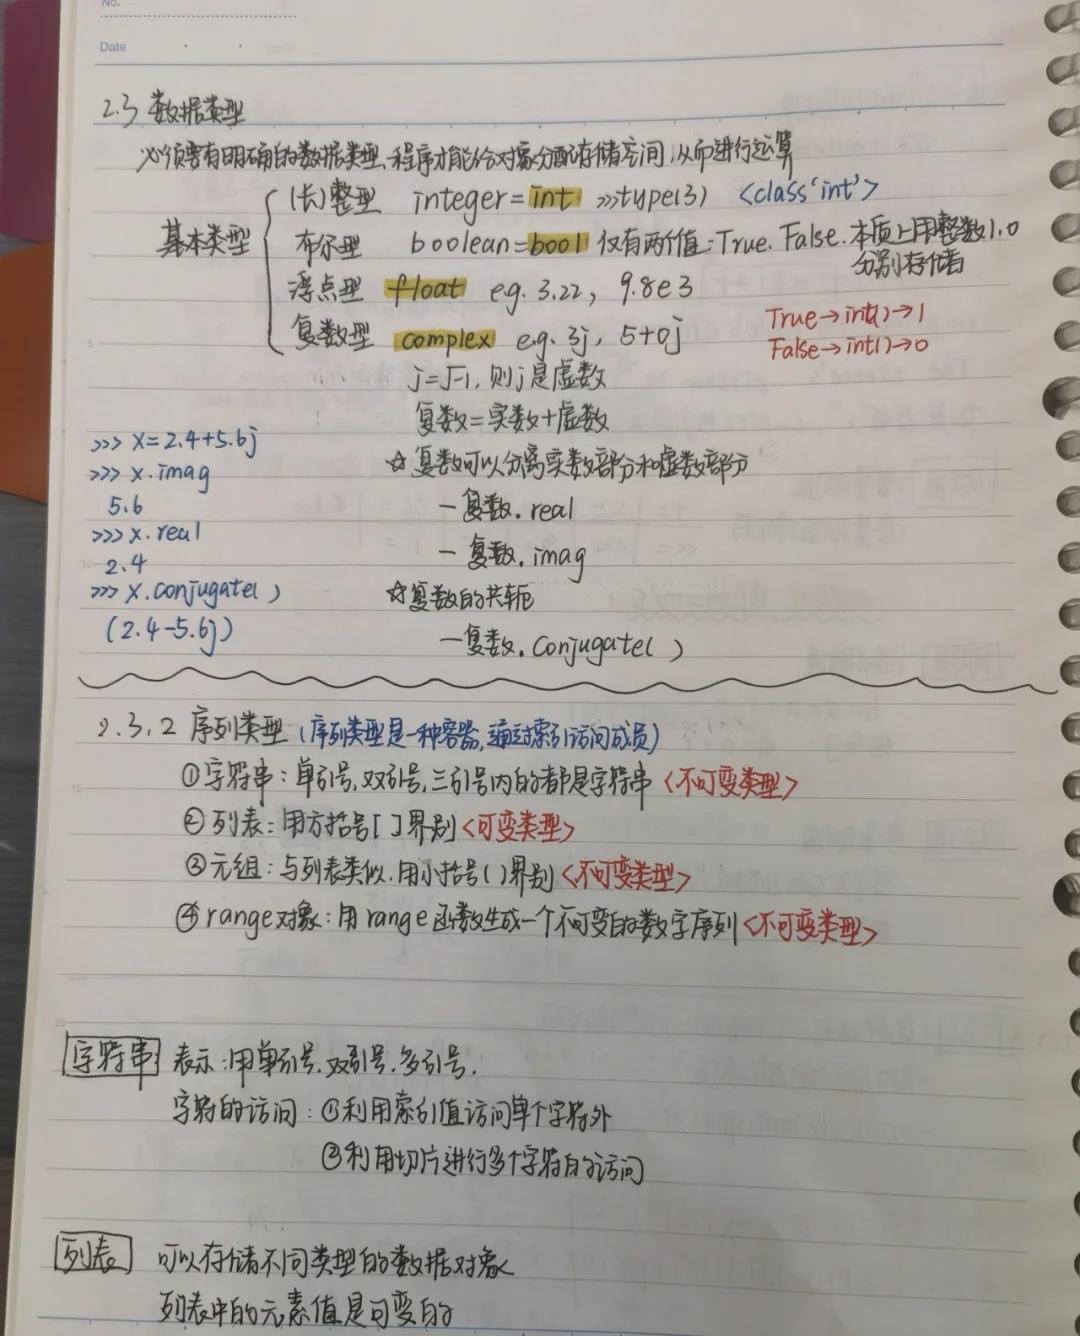 No.
Date
2.3 数据类型
必须要有明确的数据类型,程序才能给对象分配存储空间,从而进行运算
基本类型
(长)整型 integer=int >>>type(3) <class'int'>
布尔型 boolean=bool 仅有两个值:True. False. 本质上用整数1,0
分别存储
浮点型 float eg. 3.22, 9.8e3
复数型 complex e.g. 3j, 5+0j
True→int()→1
False→int()→0
j=√-1, 则j是虚数
复数=实数+虚数
☆复数可以分离实数部分和虚数部分
—复数.real
—复数.imag
☆复数的共轭
—复数.conjugate( )
>>> x=2.4+5.6j
>>> x.imag
5.6
>>> x.real
2.4
>>> x.conjugate( )
(2.4-5.6j)
2.3.2 序列类型(序列类型是一种容器,通过索引访问成员)
①字符串:单引号,双引号,三引号内的都是字符串<不可变类型>
②列表:用方括号[ ]界别<可变类型>
③元组:与列表类似.用小括号( )界别<不可变类型>
④range对象:用range函数生成一个不可变的数字序列<不可变类型>
字符串 表示:用单引号.双引号.多引号.
字符的访问:①利用索引值访问单个字符外
②利用切片进行多个字符的访问
列表 可以存储不同类型的数据对象
列表中的元素值是可变的